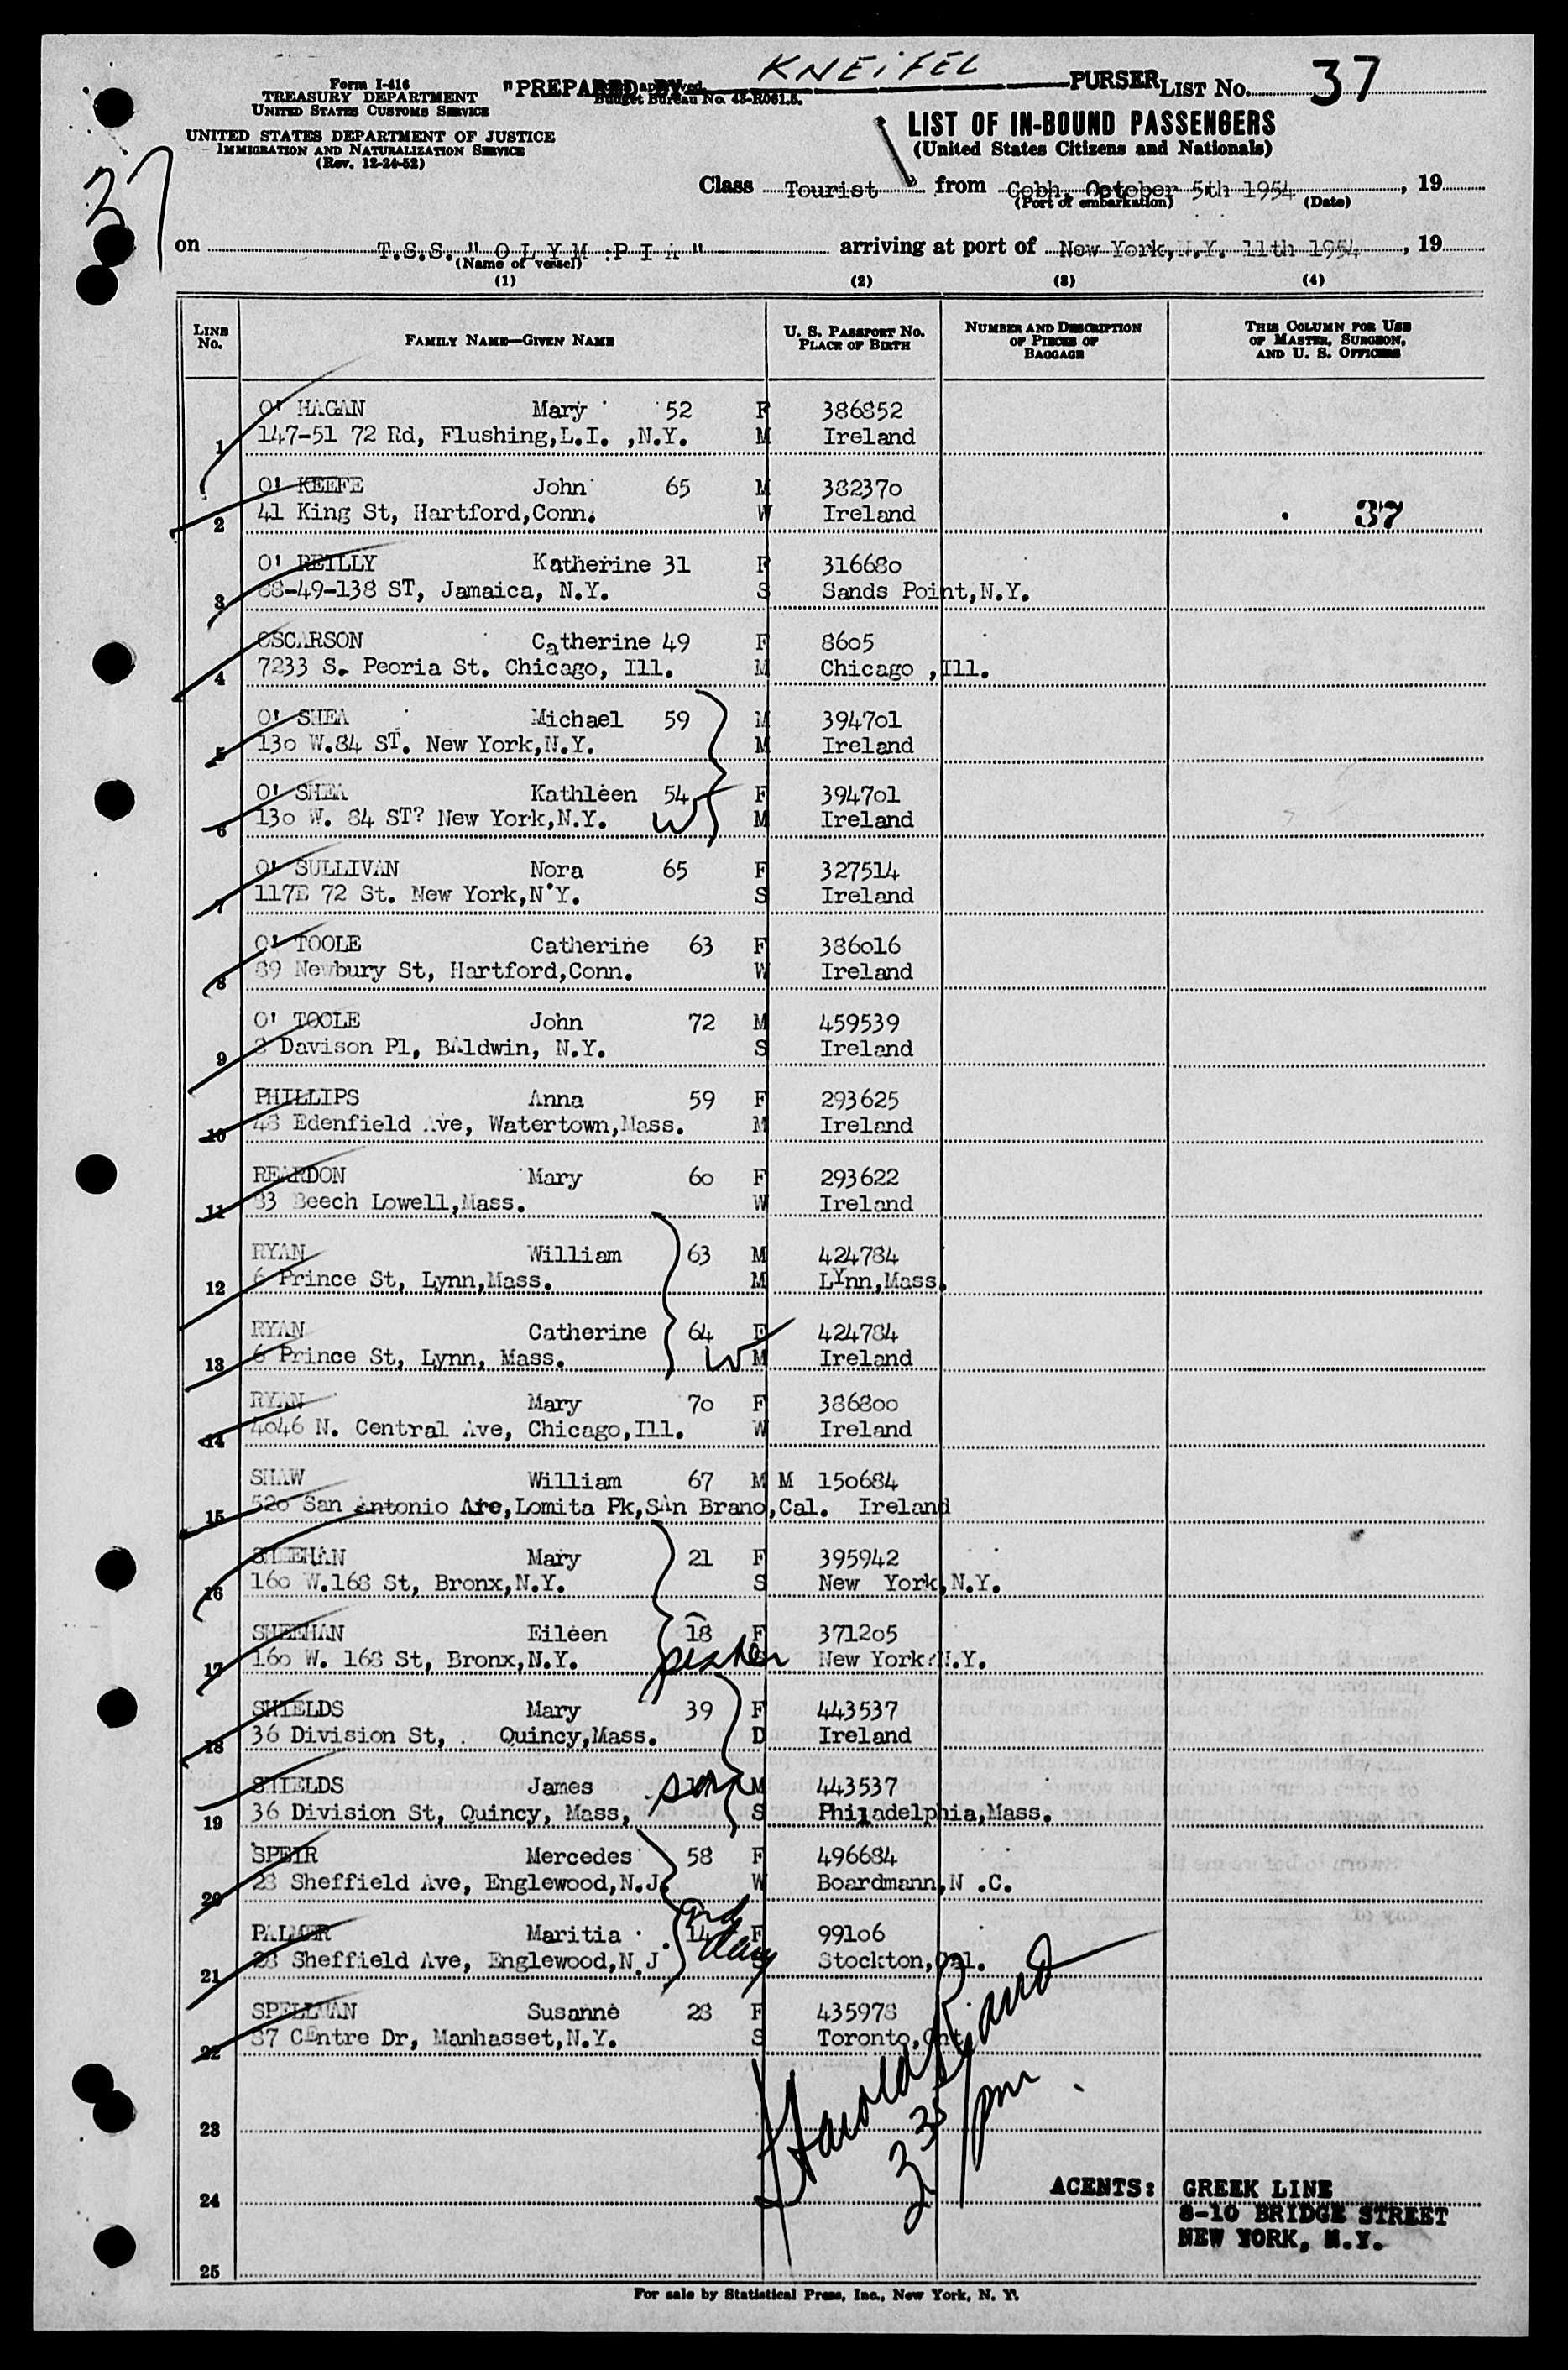 KNEIFEL
"PREPARED BY PURSER LIST No. 37
Form I-416
TREASURY DEPARTMENT
UNITED STATES CUSTOMS SERVICE
Budget Bureau No. 43-R061.5.
UNITED STATES DEPARTMENT OF JUSTICE
IMMIGRATION AND NATURALIZATION SERVICE
(Rev. 12-24-52)
LIST OF IN-BOUND PASSENGERS
(United States Citizens and Nationals)
37
Class Tourist from Cobh, October 5th 1954, 19
(Port of embarkation) (Date)
on T.S.S. "O L Y M P I A" arriving at port of New York, N.Y. 11th 1954, 19
(Name of vessel)
(1) (2) (3) (4)
LINE No. FAMILY NAME—GIVEN NAME U. S. PASSPORT No. PLACE OF BIRTH NUMBER AND DESCRIPTION OF PIECES OF BAGGAGE THIS COLUMN FOR USE OF MASTER, SURGEON, AND U. S. OFFICERS
O' HAGAN Mary 52 F 386852
1 147-51 72 Rd, Flushing,L.I. ,N.Y. M Ireland
O' KEEFE John 65 M 382370
2 41 King St, Hartford,Conn. W Ireland 37
O' REILLY Katherine 31 F 316680
3 88-49-138 ST, Jamaica, N.Y. S Sands Point,N.Y.
OSCARSON Catherine 49 F 8605
4 7233 S. Peoria St. Chicago, Ill. M Chicago ,Ill.
O' SHEA Michael 59 M 394701
5 130 W.84 ST. New York,N.Y. M Ireland
O' SHEA Kathleen 54 F 394701
6 130 W. 84 ST? New York,N.Y. W M Ireland
O' SULLIVAN Nora 65 F 327514
7 117E 72 St. New York,N'Y. S Ireland
O' TOOLE Catherine 63 F 386016
8 89 Newbury St, Hartford,Conn. W Ireland
O' TOOLE John 72 M 459539
9 8 Davison Pl, BAldwin, N.Y. S Ireland
PHILLIPS Anna 59 F 293625
10 48 Edenfield Ave, Watertown,Mass. M Ireland
REARDON Mary 60 F 293622
11 83 Beech Lowell,Mass. W Ireland
RYAN William 63 M 424784
12 6 Prince St, Lynn,Mass. M LYnn,Mass.
RYAN Catherine 64 F 424784
13 6 Prince St, Lynn, Mass. W M Ireland
RYAN Mary 70 F 386800
14 4046 N. Central Ave, Chicago,Ill. W Ireland
SHAW William 67 M M 150684
15 520 San Antonio Are,Lomita Pk,SAn Brano,Cal. Ireland
SHEEHAN Mary 21 F 395942
16 160 W.168 St, Bronx,N.Y. S New York,N.Y.
SHEEHAN Eileen 18 F 371205
17 160 W. 168 St, Bronx,N.Y. sister S New York N.Y.
SHIELDS Mary 39 F 443537
18 36 Division St, . Quincy,Mass. D Ireland
SHIELDS James son M 443537
19 36 Division St, Quincy, Mass, S Philadelphia,Mass.
SPEIR Mercedes 58 F 496684
20 28 Sheffield Ave, Englewood,N.J. W Boardmann,N .C.
PALMER Maritia 14 F 99106
21 28 Sheffield Ave, Englewood,N.J grd dau Stockton,Cal.
SPELLMAN Susanne 28 F 435978
22 37 CEntre Dr, Manhasset,N.Y. S Toronto,Ont.
Harold
3 35 pm
23
24 AGENTS: GREEK LINE
8-10 BRIDGE STREET
NEW YORK, N.Y.
25
For sale by Statistical Press, Inc., New York, N. Y.